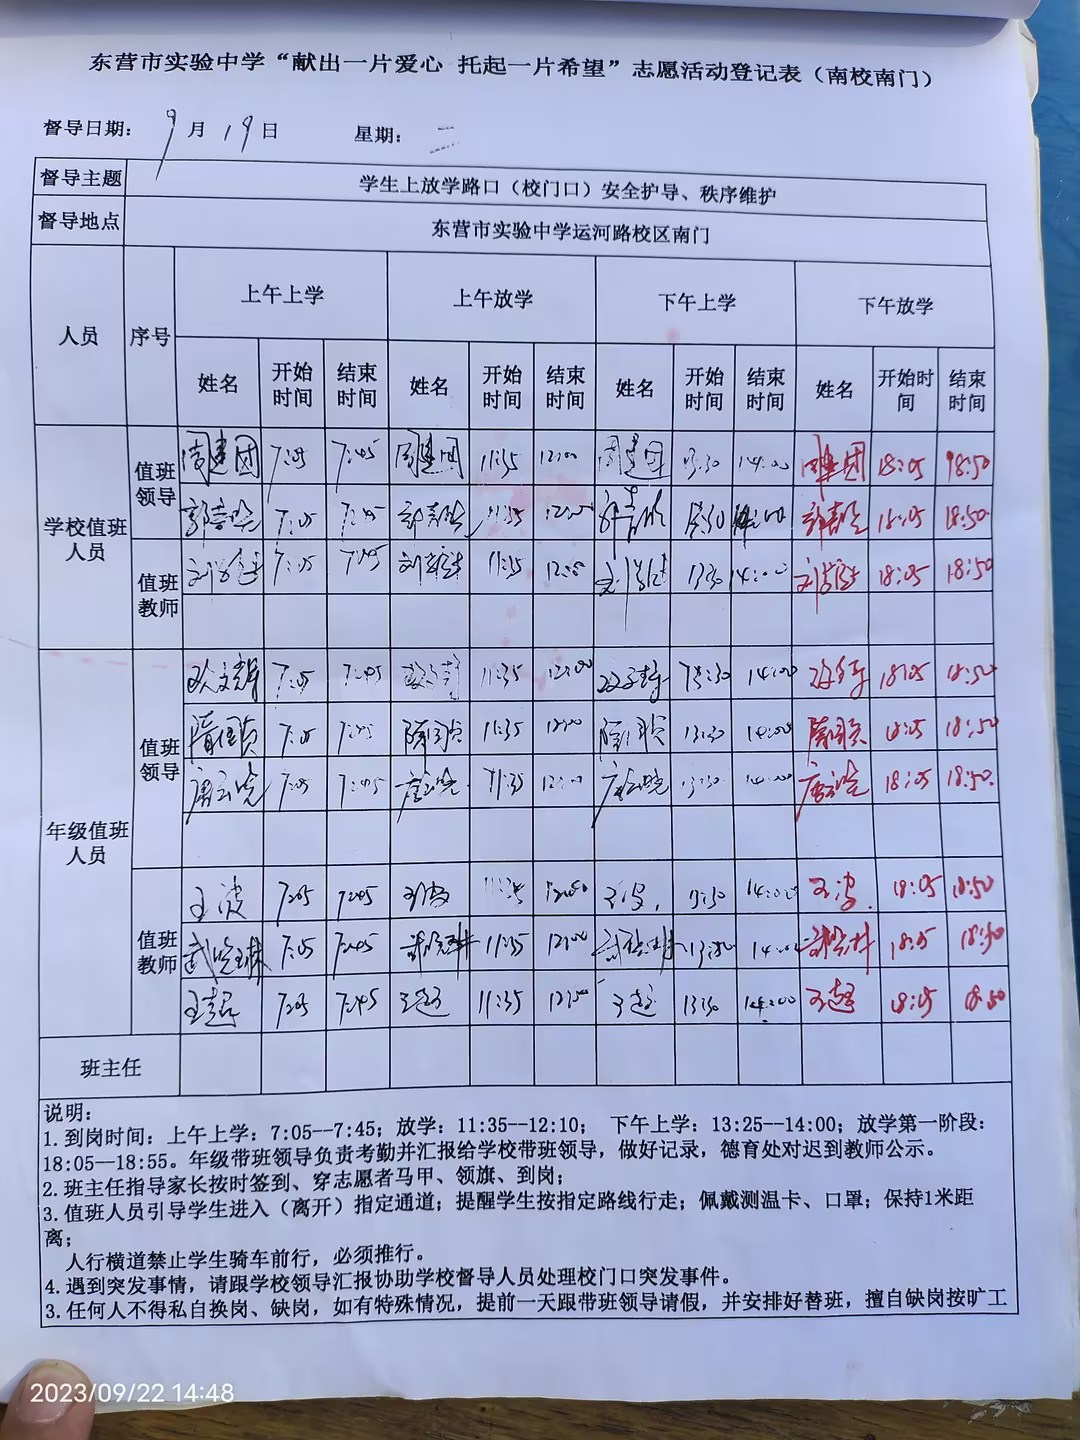 东营市实验中学“献出一片爱心 托起一片希望”志愿活动登记表（南校南门）
督导日期： 9 月 19 日 星期： 二
督导主题 学生上放学路口（校门口）安全护导、秩序维护
督导地点 东营市实验中学运河路校区南门
人员 序号 上午上学 上午放学 下午上学 下午放学
姓名 开始时间 结束时间 姓名 开始时间 结束时间 姓名 开始时间 结束时间 姓名 开始时间 结束时间
学校值班人员 值班领导 周建团 7:05 7:45 周建团 11:35 12:00 周建团 13:30 14:00 周建团 18:05 18:50
7:05 7:45 11:35 12:00 13:30 14:00 18:05 18:50
值班教师 7:05 7:45 11:35 12:00 13:30 14:00 18:05 18:50
年级值班人员 值班领导 7:05 7:45 11:35 12:00 13:30 14:00 18:05 18:50
隋国贞 7:05 7:45 隋国贞 11:35 12:00 隋国贞 13:30 14:00 隋国贞 18:05 18:50
唐云晓 7:05 7:45 唐云晓 11:35 12:00 唐云晓 13:30 14:00 唐云晓 18:05 18:50.
值班教师 王波 7:05 7:45 王波 11:35 12:00 王波 13:30 14:00 王波 18:05 18:50
武晓琳 7:05 7:45 武晓琳 11:35 12:00 武晓琳 13:30 14:00 武晓琳 18:05 18:50
王超 7:05 7:45 王超 11:35 12:00 王超 13:30 14:00 王超 18:05 18:50
班主任
说明：
1. 到岗时间：上午上学：7:05--7:45；放学：11:35--12:10； 下午上学：13:25--14:00；放学第一阶段：
18:05--18:55。年级带班领导负责考勤并汇报给学校带班领导，做好记录，德育处对迟到教师公示。
2. 班主任指导家长按时签到、穿志愿者马甲、领旗、到岗；
3. 值班人员引导学生进入（离开）指定通道；提醒学生按指定路线行走；佩戴测温卡、口罩；保持1米距
离；
人行横道禁止学生骑车前行，必须推行。
4. 遇到突发事情，请跟学校领导汇报协助学校督导人员处理校门口突发事件。
3. 任何人不得私自换岗、缺岗，如有特殊情况，提前一天跟带班领导请假，并安排好替班，擅自缺岗按旷工
2023/09/22 14:48